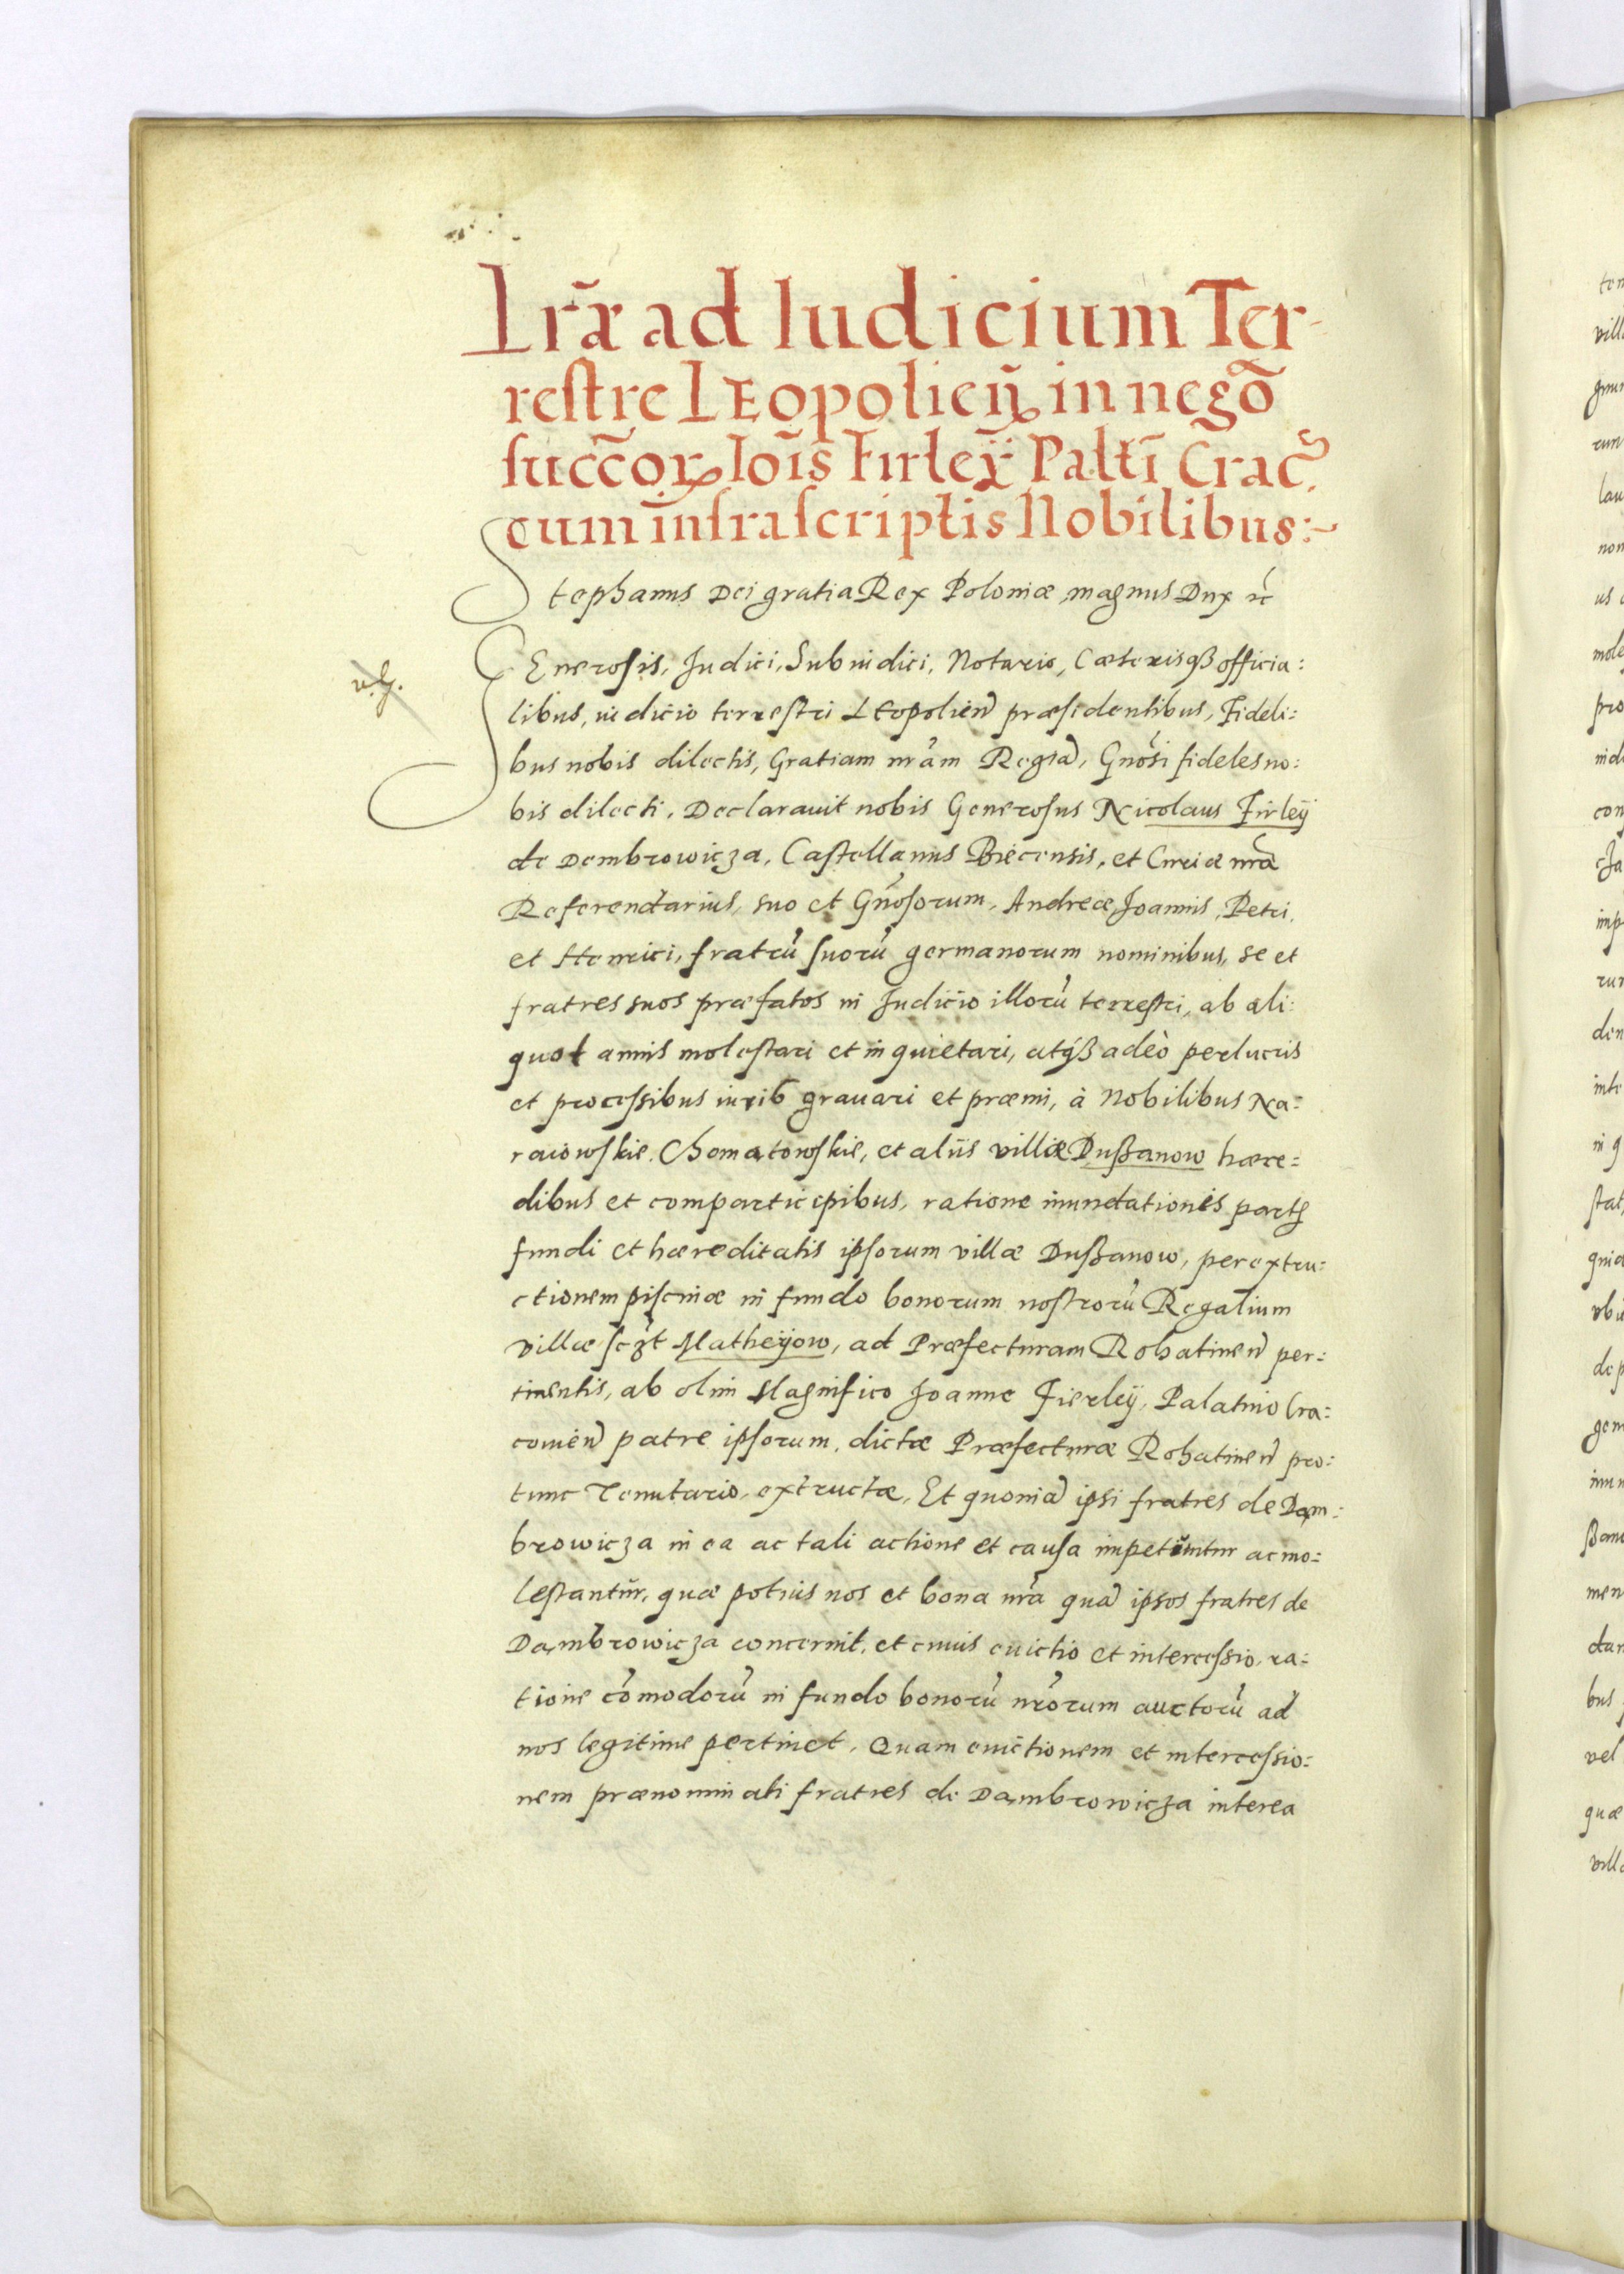 Lrãe ad Iudicium Ter-
restre LEopolieñ in nego͂
succ͂or Io͂is Firleÿ Palti͂ Crac.
cum infrascriptis Nobilibus:~
Stephanus Dei gratia Rex Poloniæ, magnus Dux
GEnerosis, Iudici, Subiudici, Notario, Cæterisqꝫ officia:
libus, iudicio terrestri LEopolieñ præsidentibus, Fideli:
bus nobis dilectis, Gratiam nr̃am Regiã, Gño͂si fideles no:
bis dilecti. Declarauit nobis Generosus Nicolaus Firleÿ
de Dombrowicza, Castellanus Biecensis, et Curiæ nrã
Referendarius, suo et Gñosorum, Andreæ, Joannis, Petri,
et Henrici, fratrũ suorũ germanorum nominibus, se et
fratres suos præfatos in Iudicio illorũ terrestri, ab ali:
quot annis molestari et inquietari, atqꝫ adeò per lucris
et processibus iurib grauari et præmi, à Nobilibus Na:
raiowskie. Chomatowskie, et aliis villæ Dußanow hære:
dibus et comparticipibus, ratione inundationis partis
fundi et hæreditatis ipsorum villæ Dußanow, per extru:
ctionem piscinæ in fundo bonorum nostrorũ Regalium
villæ scꝫt Matheÿow, ad Præfecturam Rohatineñ per:
tinentis, ab olim Magnifico Joanne Fierleÿ, Palatino Cra:
couieñ patre ipsorum, dictæ Præfecturæ Rohatineñ pro:
tunc Tenutario, extructæ, Et quoniã ipsi fratres de Dam:
browicza in ea ac tali actione et causa impetũntur ac mo:
lestantũr, quæ potius nos et bona nrã quã ipsos fratres de
Dambrowicza concernit, et cuius euictio et intercessio, ra:
tione co͂modorũ in fundo bonorũ nr̃orum auctorũ ad
nos legitime pertinet. Quam euictionem et intercessio:
nem prænominati fratres de Dambrowicza interea